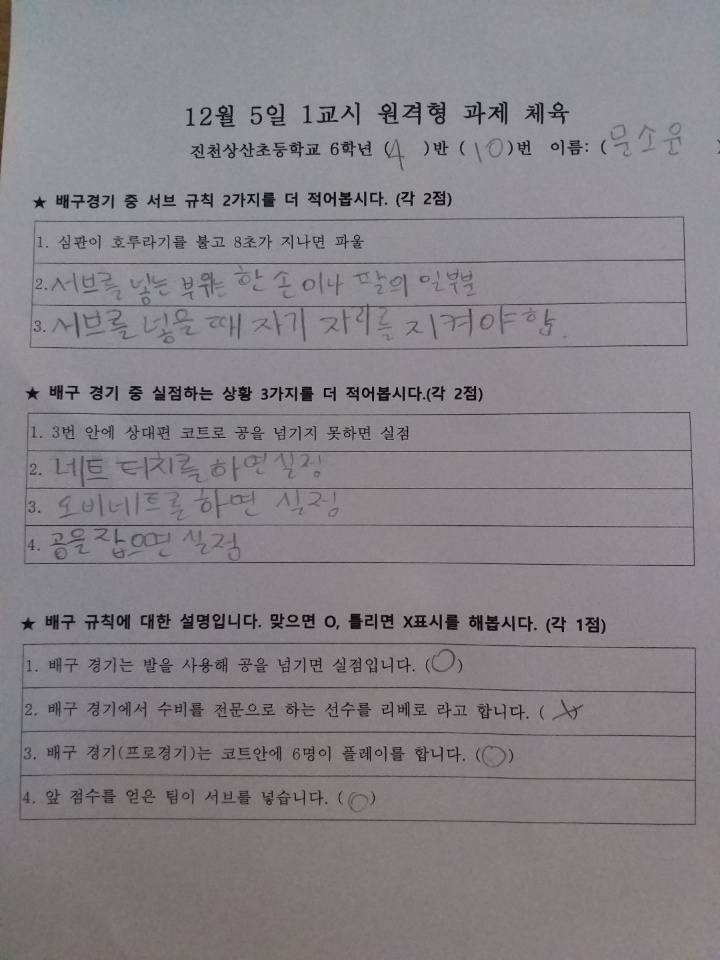 12월 5일 1교시 원격형 과제 체육
진천상산초등학교 6학년 (4 )반 (10)번 이름: (문소윤 )
★ 배구경기 중 서브 규칙 2가지를 더 적어봅시다. (각 2점)
1. 심판이 호루라기를 불고 8초가 지나면 파울
2. 서브를 넣는 부위는 한 손이나 팔의 일부분
3. 서브를 넣을 때 자기 자리를 지켜야 함.
★ 배구 경기 중 실점하는 상황 3가지를 더 적어봅시다.(각 2점)
1. 3번 안에 상대편 코트로 공을 넘기지 못하면 실점
2. 네트 터치를 하면 실점
3. 오비네트를 하면 실점
4. 공을 잡으면 실점
★ 배구 규칙에 대한 설명입니다. 맞으면 O, 틀리면 X표시를 해봅시다. (각 1점)
1. 배구 경기는 발을 사용해 공을 넘기면 실점입니다. (O)
2. 배구 경기에서 수비를 전문으로 하는 선수를 리베로 라고 합니다. ( X)
3. 배구 경기(프로경기)는 코트안에 6명이 플레이를 합니다. (O)
4. 앞 점수를 얻은 팀이 서브를 넣습니다. (O)